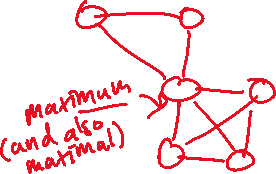 maximum
(and also
maximal)